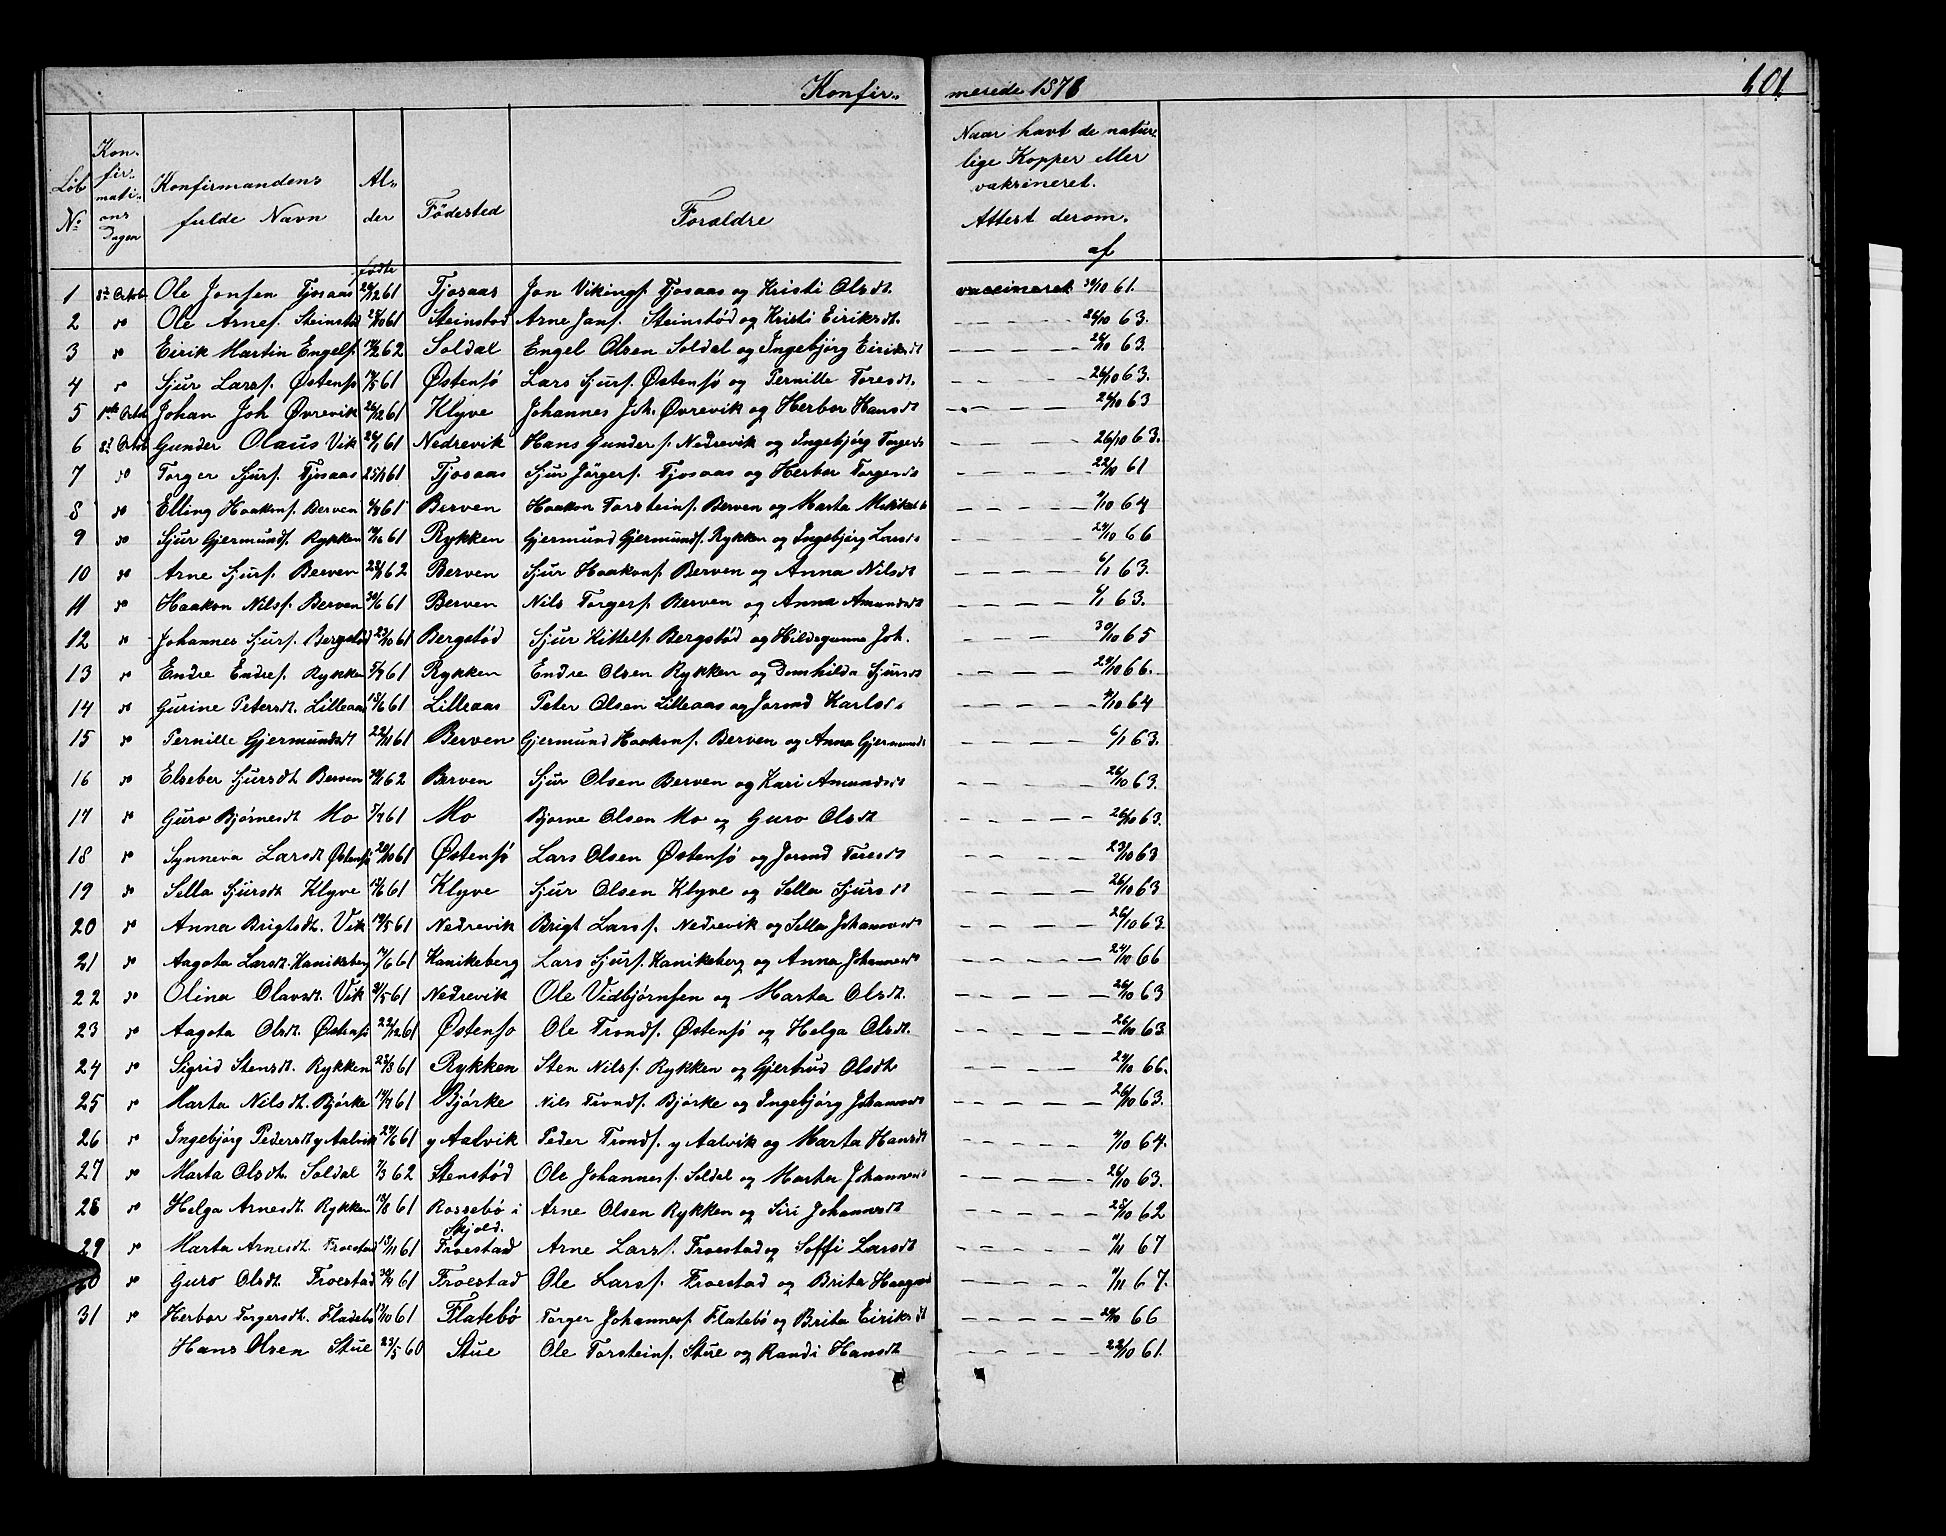 Konfir- merede 1876 101
Löb No Kon-fir-mati-ons Dagen Konfirmandens fulde Navn Al-der Födested Forældre Naar havt de naturlige Kopper eller vakcineret. Attest derom. af
födte
1 8de Octob Ole Jonsen Tjosaas 26/12 61 Tjosaas Jon Vikingf. Tjosaas og Kristi Olsdt. vaccineret 30/10 61.
2 do Ole Arnef. Steinstö 61 Steinstöd Arne Janf. Steinstöd og Kristi Eiriksdt. 26/10 63.
3 do Eirik Martin Engelf. 62 Soldal Engel Olsen Soldal og Ingebjörg Eiriksdt 26/10 63.
4 do Sjur Larsf. Østensö 61 Østensö Lars Sjurf. Østensö og Pernille Toresdt. 26/10 63.
5 Octob Johan Joh Øvrevik 61 Klyve Johannes Joh. Øvrevik og Herbor Hansdt 26/10 63
6 8de Octob Gunder Olaus Vik 61 Nedrevik Hans Gunderf. Nedrevik og Ingebjörg Torgersdt 26/10 63.
7 do Torger Sjurf. Tjosaas 61 Tjosaas Sjur Jörgerf. Tjosaas og Herbor Torgersdt 22/10 61
8 do Elling Haakonf. Berven 61 Berven Haakon Torsteinf. Berven og Marta 64
9 do Sjur Gjermundf. Rykken 61 Rykken Gjermund Gjermundf. Rykken og Ingebjörg Larsdt 29/10 66
10 do Arne Sjurf. Berven 62 Berven Sjur Haakonf. Berven og Anna Nilsdt 6/1 63.
11 do Haakon Nilsf. Berven 30/6 61 Berven Nils Torgerf. Berven og Anna Amundsdt 6/1 63.
12 do Johannes Sjurf. Bergstöd 61 Bergstöd Sjur Kittelf. Bergstöd og Hildegunna Joh. 30/10 65
13 do Endre Endref. Rykken 61 Rykken Endre Olsen Rykken og Domhilda Sjursdt 29/10 66.
14 do Gurine Petersdt. Lilleaas 61 Lilleaas Peter Olsen Lilleaas og Jorond Karlsdt 64
15 do Pernille Gjermundsdt 22/11 61 Berven Gjermund Haakonf. Berven og Anna Gjermundsdt 6/1 63.
16 do Elseber Sjursdt Berven 62 Berven Sjur Olsen Berven og Kari Amundsdt 26/10 63.
17 do Guro Björnesdt Mo 5/7 61 Mo Bjorne Olsen Mo og Guro Olsdt 26/10 63.
18 do Synneva Larsdt Østensö 20/10 61 Østensö Lars Olsen Østensö og Jorond Toresdt 23/10 63
19 do Sella Sjursdt Klyve 61 Klyve Sjur Olsen Klyve og Sella Sjursdt 26/10 63
20 do Anna Brigtsdt. Vik 19/5 61 Nedrevik Brigt Larsf. Nedrevik og Sella Johannesdt 26/10 63.
21 do Aagota Larsdt. Kanikeberg 61 Kanikeberg Lars Sjurf. Kanikeberg og Anna Johannesdt 29/10 66
22 do Olina Olavsdt. Vik 61 Nedrevik Ole Vidbjörnsen og Marta Olsdt. 26/10 63
23 do Aagota Olsdt. Østensö 22/12 61 Østenso Ole Trondf. Østensö og Helga Olsdt. 26/10 63
24 do Sigrid Stensdt. Rykken 23/8 61 Rykken Sten Nilsf. Rykken og Gjertrud Olsdt 29/10 66.
25 do Marta Nilsdt. Björke 61 Björke Nils Trondf. Björke og Ingebjörg Johannesdt 26/10 63.
26 do Ingebjörg Pedersdt y Aalvik 29/6 61 y Aalvik Peder Trondf. y Aalvik og Marta Hansdt 64.
27 do Marta Olsdt. Soldal 7/3 62 Stenstöd Ole Johannesf. Soldal og Marta Johannesdt 26/10 63.
28 do Helga Arnesdt. Rykken 61 Rossebö i Skjold. Arne Olsen Rykken og Siri Johannesdt 62
29 do Marta Arnesdt. Froestad 61 Froestad Arne Larsf. Froestad og Soffi Larsdt 67
30 do Guro Olsdt. Froestad 61 Froestad Ole Larsf. Froestad og Brita 67.
31 do Herbor Torgersdt. Fladebö 61 Flatebö Torger Johannesf. Flatebö og Brita Eiriksdt 29/10 66
Hans Olsen Stue 23/5 60 Stue Ole Torsteinf. Stue og Randi Hansdt 22/10 61.